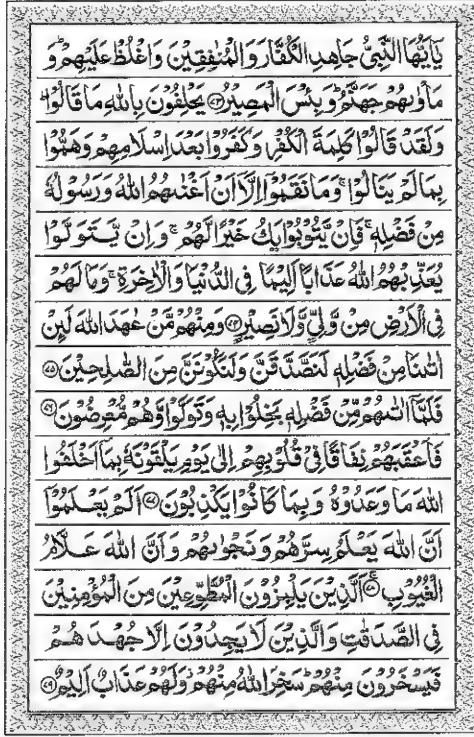 يٰۤاَيُّهَا النَّبِىُّ جَاهِدِ الْكُفَّارَ وَالْمُنٰفِقِيْنَ وَاغْلُظْ عَلَيْهِمْ ؕ وَ
مَاْوٰىهُمْ جَهَنَّمُ ؕ وَبِئْسَ الْمَصِيْرُ ﴿۷۳﴾ يَحْلِفُوْنَ بِاللّٰهِ مَا قَالُوْا ؕ
وَلَقَدْ قَالُوْا كَلِمَةَ الْكُفْرِ وَكَفَرُوْا بَعْدَ اِسْلَامِهِمْ وَهَمُّوْا
بِمَا لَمْ يَنَالُوْا ۚ وَمَا نَقَمُوْۤا اِلَّاۤ اَنْ اَغْنٰىهُمُ اللّٰهُ وَرَسُوْلُهٗ
مِنْ فَضْلِهٖ ۚ فَاِنْ يَّتُوْبُوْا يَكُ خَيْرًا لَّهُمْ ۚ وَاِنْ يَّتَوَلَّوْا
يُعَذِّبْهُمُ اللّٰهُ عَذَابًا اَلِيْمًا فِى الدُّنْيَا وَالْاٰخِرَةِ ۚ وَمَا لَهُمْ
فِى الْاَرْضِ مِنْ وَّلِىٍّ وَّلَا نَصِيْرٍ ﴿۷۴﴾ وَمِنْهُمْ مَّنْ عٰهَدَ اللّٰهَ لَئِنْ
اٰتٰىنَا مِنْ فَضْلِهٖ لَنَصَّدَّقَنَّ وَلَنَكُوْنَنَّ مِنَ الصّٰلِحِيْنَ ﴿۷۵﴾
فَلَمَّاۤ اٰتٰىهُمْ مِّنْ فَضْلِهٖ بَخِلُوْا بِهٖ وَتَوَلَّوْا وَّهُمْ مُّعْرِضُوْنَ ﴿۷۶﴾
فَاَعْقَبَهُمْ نِفَاقًا فِىْ قُلُوْبِهِمْ اِلٰى يَوْمِ يَلْقَوْنَهٗ بِمَاۤ اَخْلَفُوا
اللّٰهَ مَا وَعَدُوْهُ وَبِمَا كَانُوْا يَكْذِبُوْنَ ﴿۷۷﴾ اَلَمْ يَعْلَمُوْۤا
اَنَّ اللّٰهَ يَعْلَمُ سِرَّهُمْ وَنَجْوٰىهُمْ وَاَنَّ اللّٰهَ عَلَّامُ
الْغُيُوْبِ ۚ﴿۷۸﴾ اَلَّذِيْنَ يَلْمِزُوْنَ الْمُطَّوِّعِيْنَ مِنَ الْمُؤْمِنِيْنَ
فِى الصَّدَقٰتِ وَالَّذِيْنَ لَا يَجِدُوْنَ اِلَّا جُهْدَهُمْ
فَيَسْخَرُوْنَ مِنْهُمْ ؕ سَخِرَ اللّٰهُ مِنْهُمْ ۫ وَلَهُمْ عَذَابٌ اَلِيْمٌ ﴿۷۹﴾